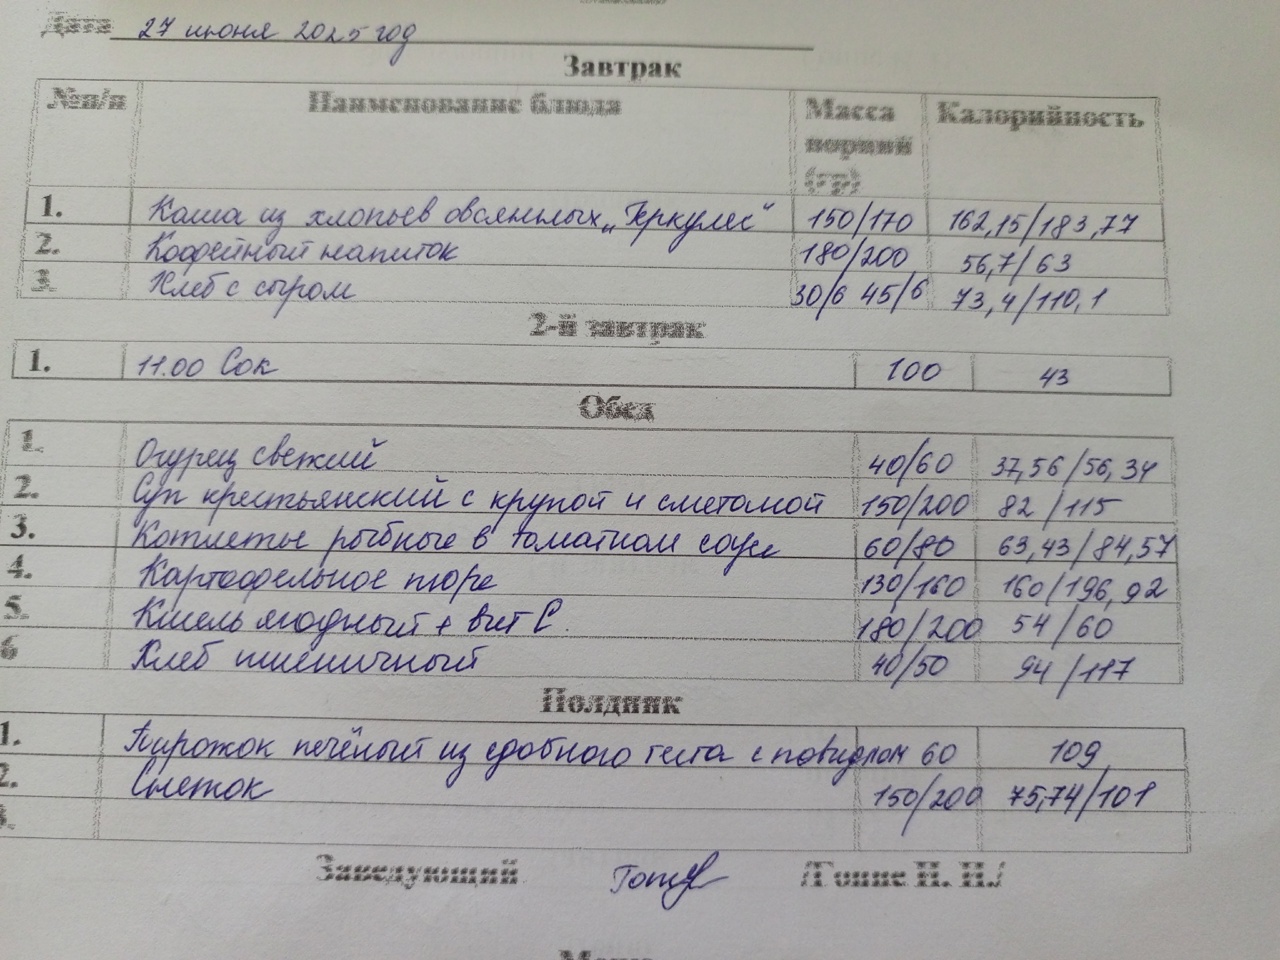 Дата 27 июня 2025 год
Завтрак
№п/п Наименование блюда Масса порций (гр) Калорийность
1. Каша из хлопьев овсянных „Геркулес" 150/170 162,15/183,77
2. Кофейный напиток 180/200 56,7/63
3. Хлеб с сыром 30/6 45/6 73,4/110,1
2-й завтрак
1. 11.00 Сок 100 43
Обед
1. Огурец свежий 40/60 37,56/56,34
2. Суп крестьянский с крупой и сметаной 150/200 82/115
3. Котлеты рыбные в томатном соусе 60/80 63,43/84,57
4. Картофельное пюре 130/160 160/196,92
5. Кисель ягодный + вит С. 180/200 54/60
6 Хлеб пшеничный 40/50 94/117
Полдник
1. Пирожок печёный из сдобного теста с повидлом 60 109
2. Снежок 150/200 75,74/101
3.
Заведующий /Гоппе Н. Н./
Меню